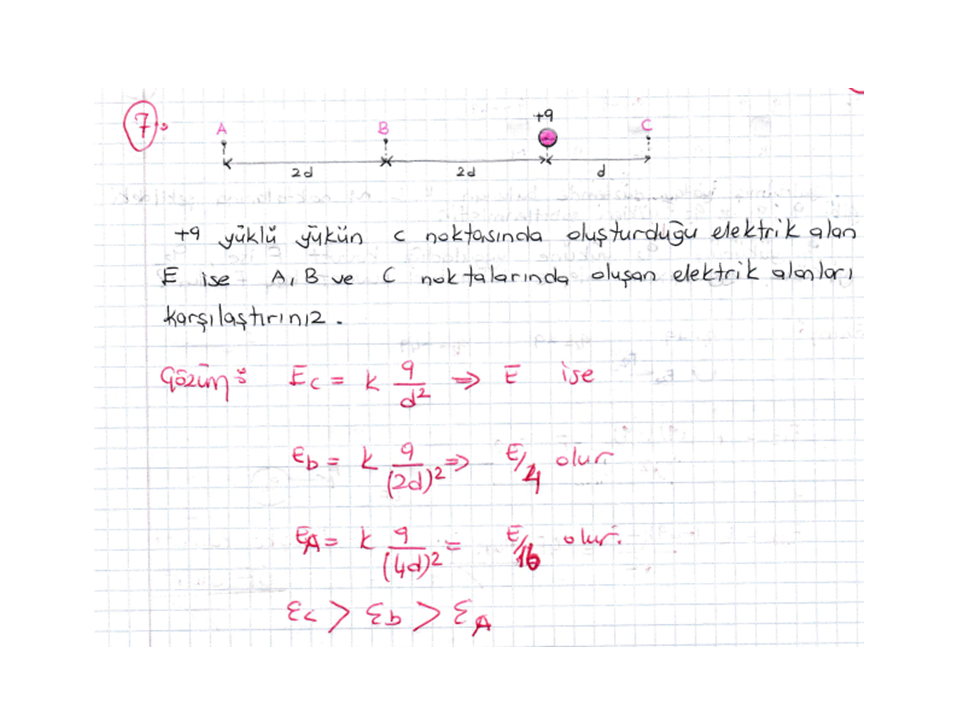 7.
+q
A B C
2d 2d d
+q yüklü yükün C noktasında oluşturduğu elektrik alan
E ise A, B ve C noktalarında oluşan elektrik alanları
karşılaştırınız.
Çözüm: Ec = k q/d² ⇒ E ise
Eb = k q/(2d)² ⇒ E/4 olur
EA = k q/(4d)² = E/16 olur.
Ec > Eb > EA